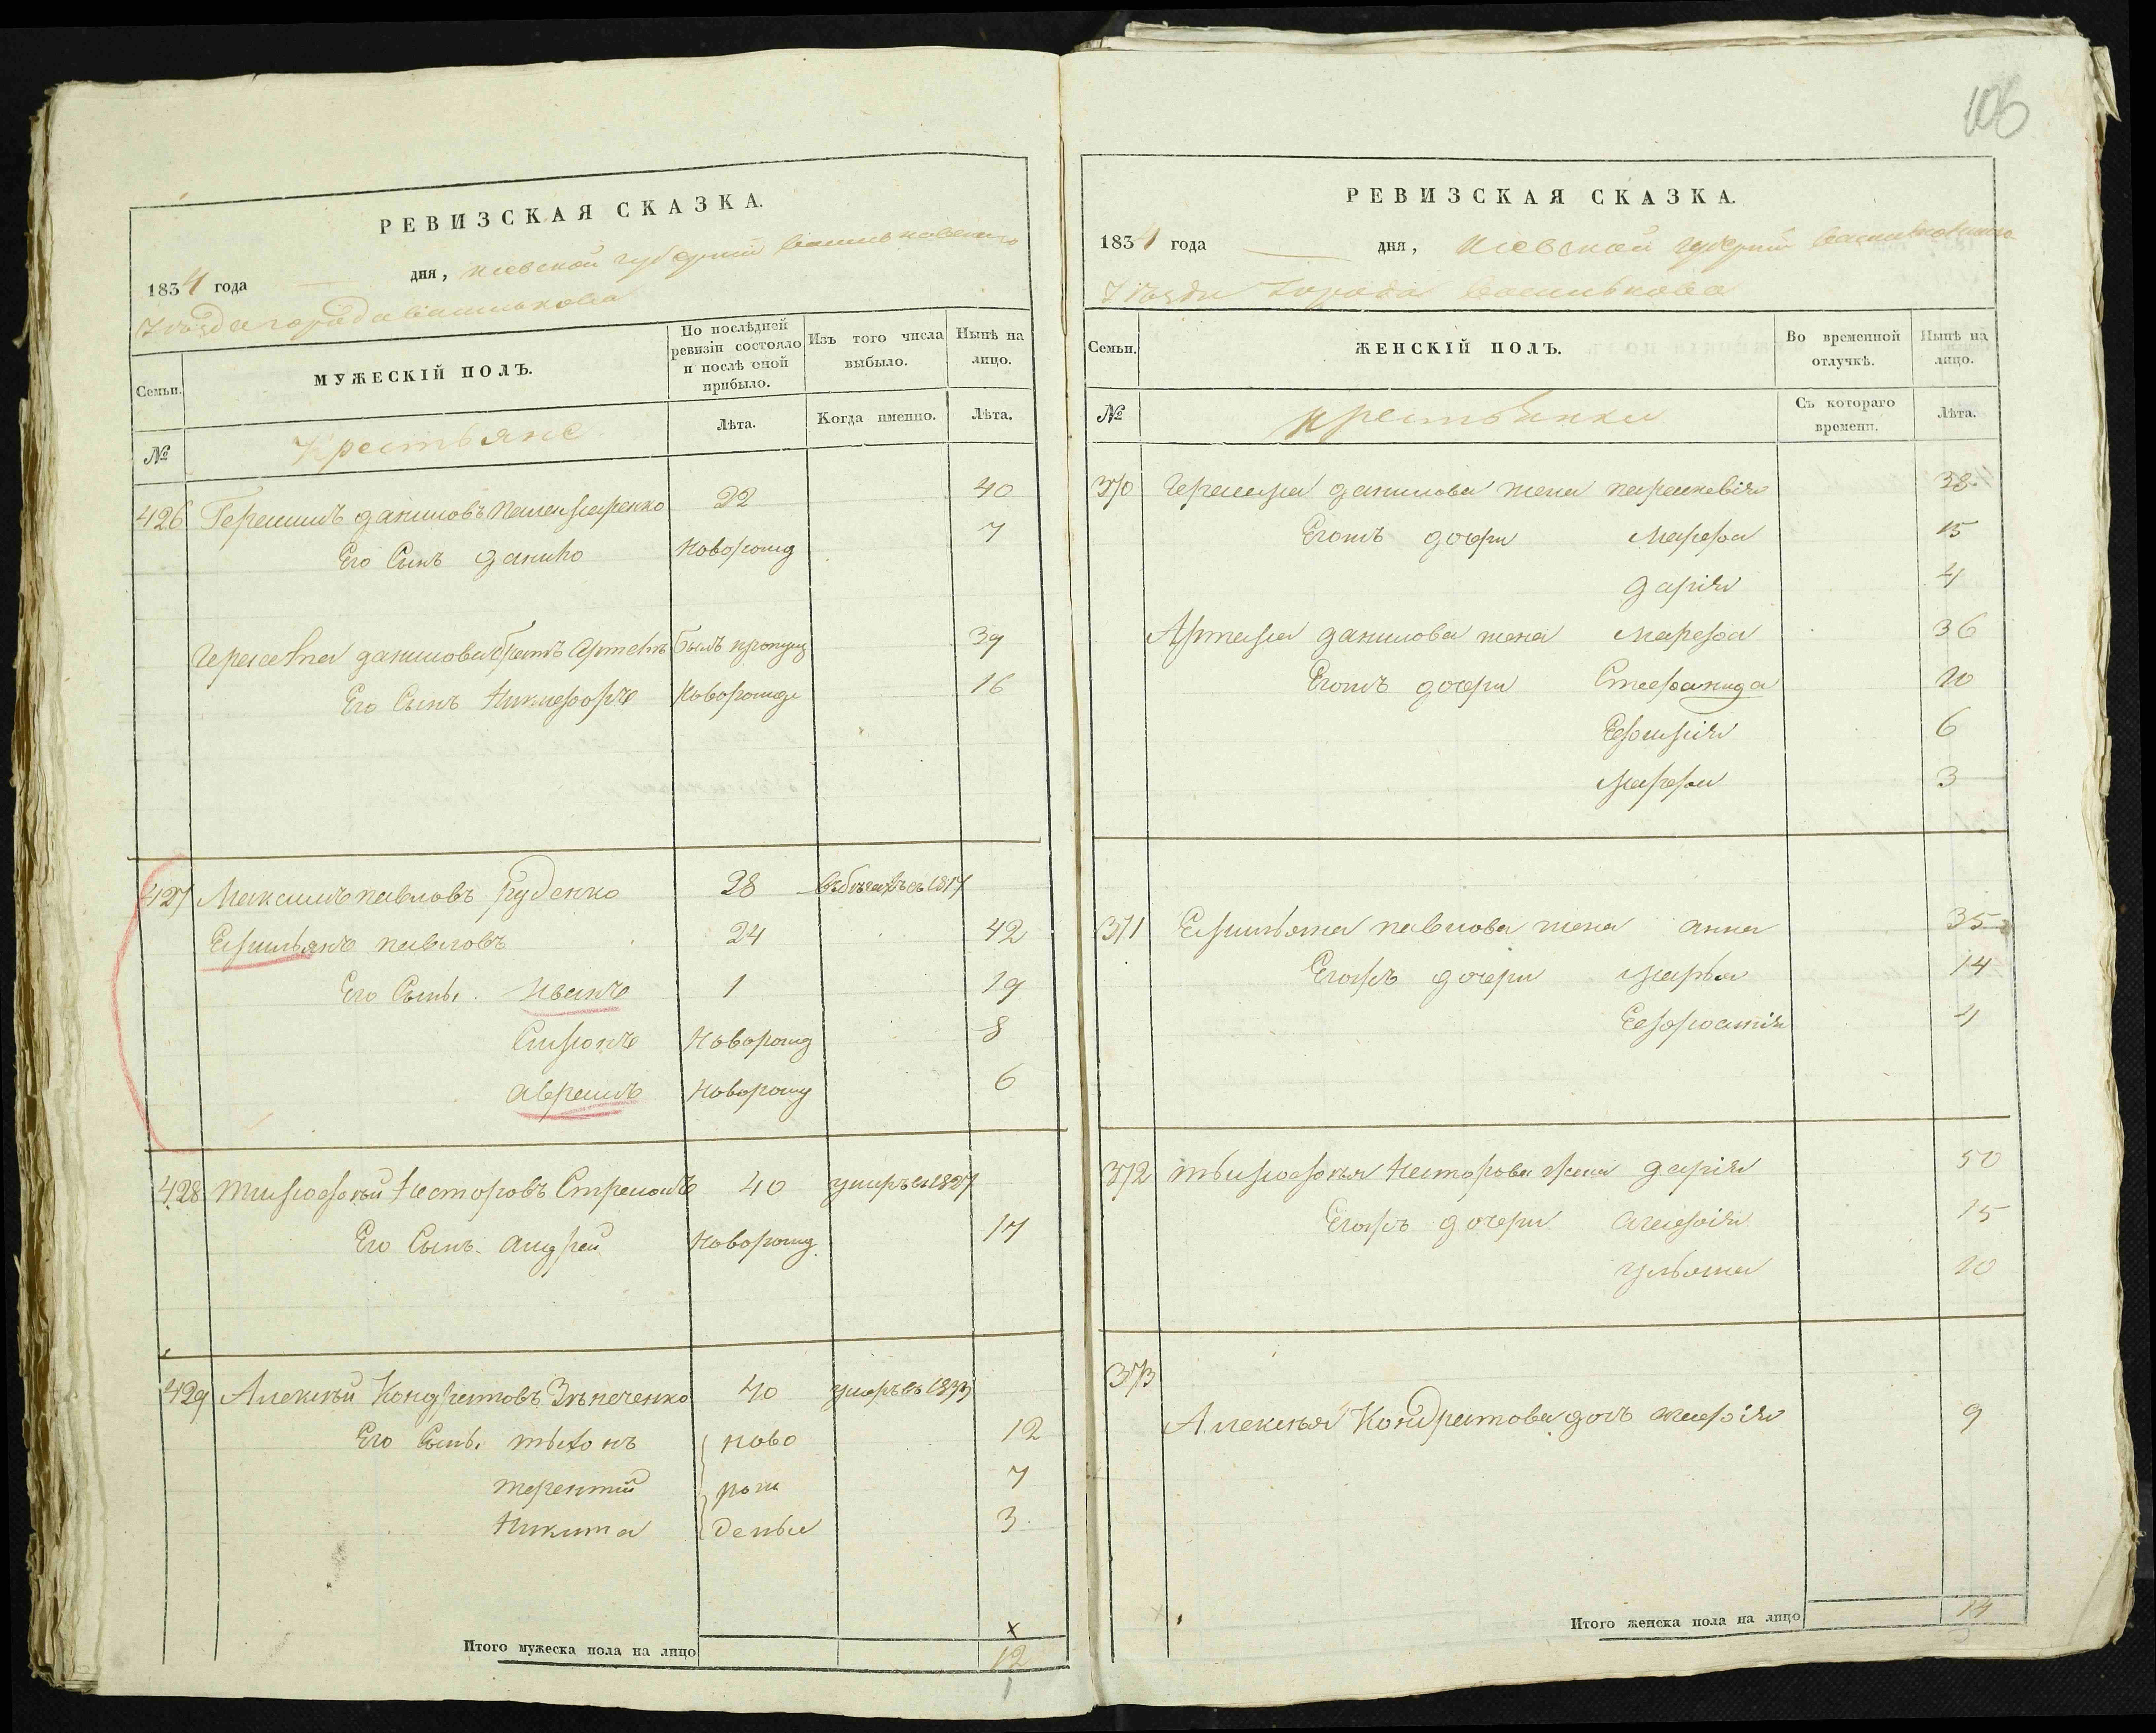 106
РЕВИЗСКАЯ СКАЗКА.
1834 года дня, Киевской губернии Васильковского
Уѣзда города Василькова
Семьи.
МУЖЕСКІЙ ПОЛЪ.
По послѣдней ревизіи состояло и послѣ оной прибыло.
Изъ того числа выбыло.
Нынѣ на лицо.
№
Крестьяне
Лѣта.
Когда именно.
Лѣта.
426 Герасимъ даниловъ 22 40
Его Сынъ данило Новорожд 7
Герасима данилова братъ Артемъ былъ пропущ 39
Его Сынъ Никифоръ Новорожде 16
427 Максимъ павловъ Руденко 28 въ бѣгахъ съ 1817
Емильянъ павловъ 24 42
Его Сыны. Иванъ 1 19
Симонъ Новорожд 8
аврамъ Новорожд 6
428 тимофѣй Несторовъ 40 умеръ въ 1827
Его Сынъ андрей Новорожд 17
429 Алексѣй Кондратовъ 40 умеръ въ 1833
Его Сыны тихонъ ново 12
терентий рож 7
Никита денны 3
Итого мужеска пола на лицо 12
РЕВИЗСКАЯ СКАЗКА.
1834 года дня, Киевской губернии Васильковского
Уѣзда Города Василькова
Семьи.
ЖЕНСКІЙ ПОЛЪ.
Во временной отлучкѣ.
Нынѣ на лицо.
№
крестьянки
Съ котораго времени.
Лѣта.
370 Герасима данилова жена параскевія 38
Егожъ дочери Марфа 15
дарія 4
Артема данилова жена Марфа 36
Егожъ дочери Стефанида 10
Ефимія 6
марфа 3
371 Емильяна павлова жена анна 35
Егожъ дочери марья 14
Ефросинія 4
372 тимофѣя Несторова жена дарія 50
Егожъ дочери 15
ульяна 10
373
Алексѣя Кондратова дочь 9
Итого женска пола на лицо 14